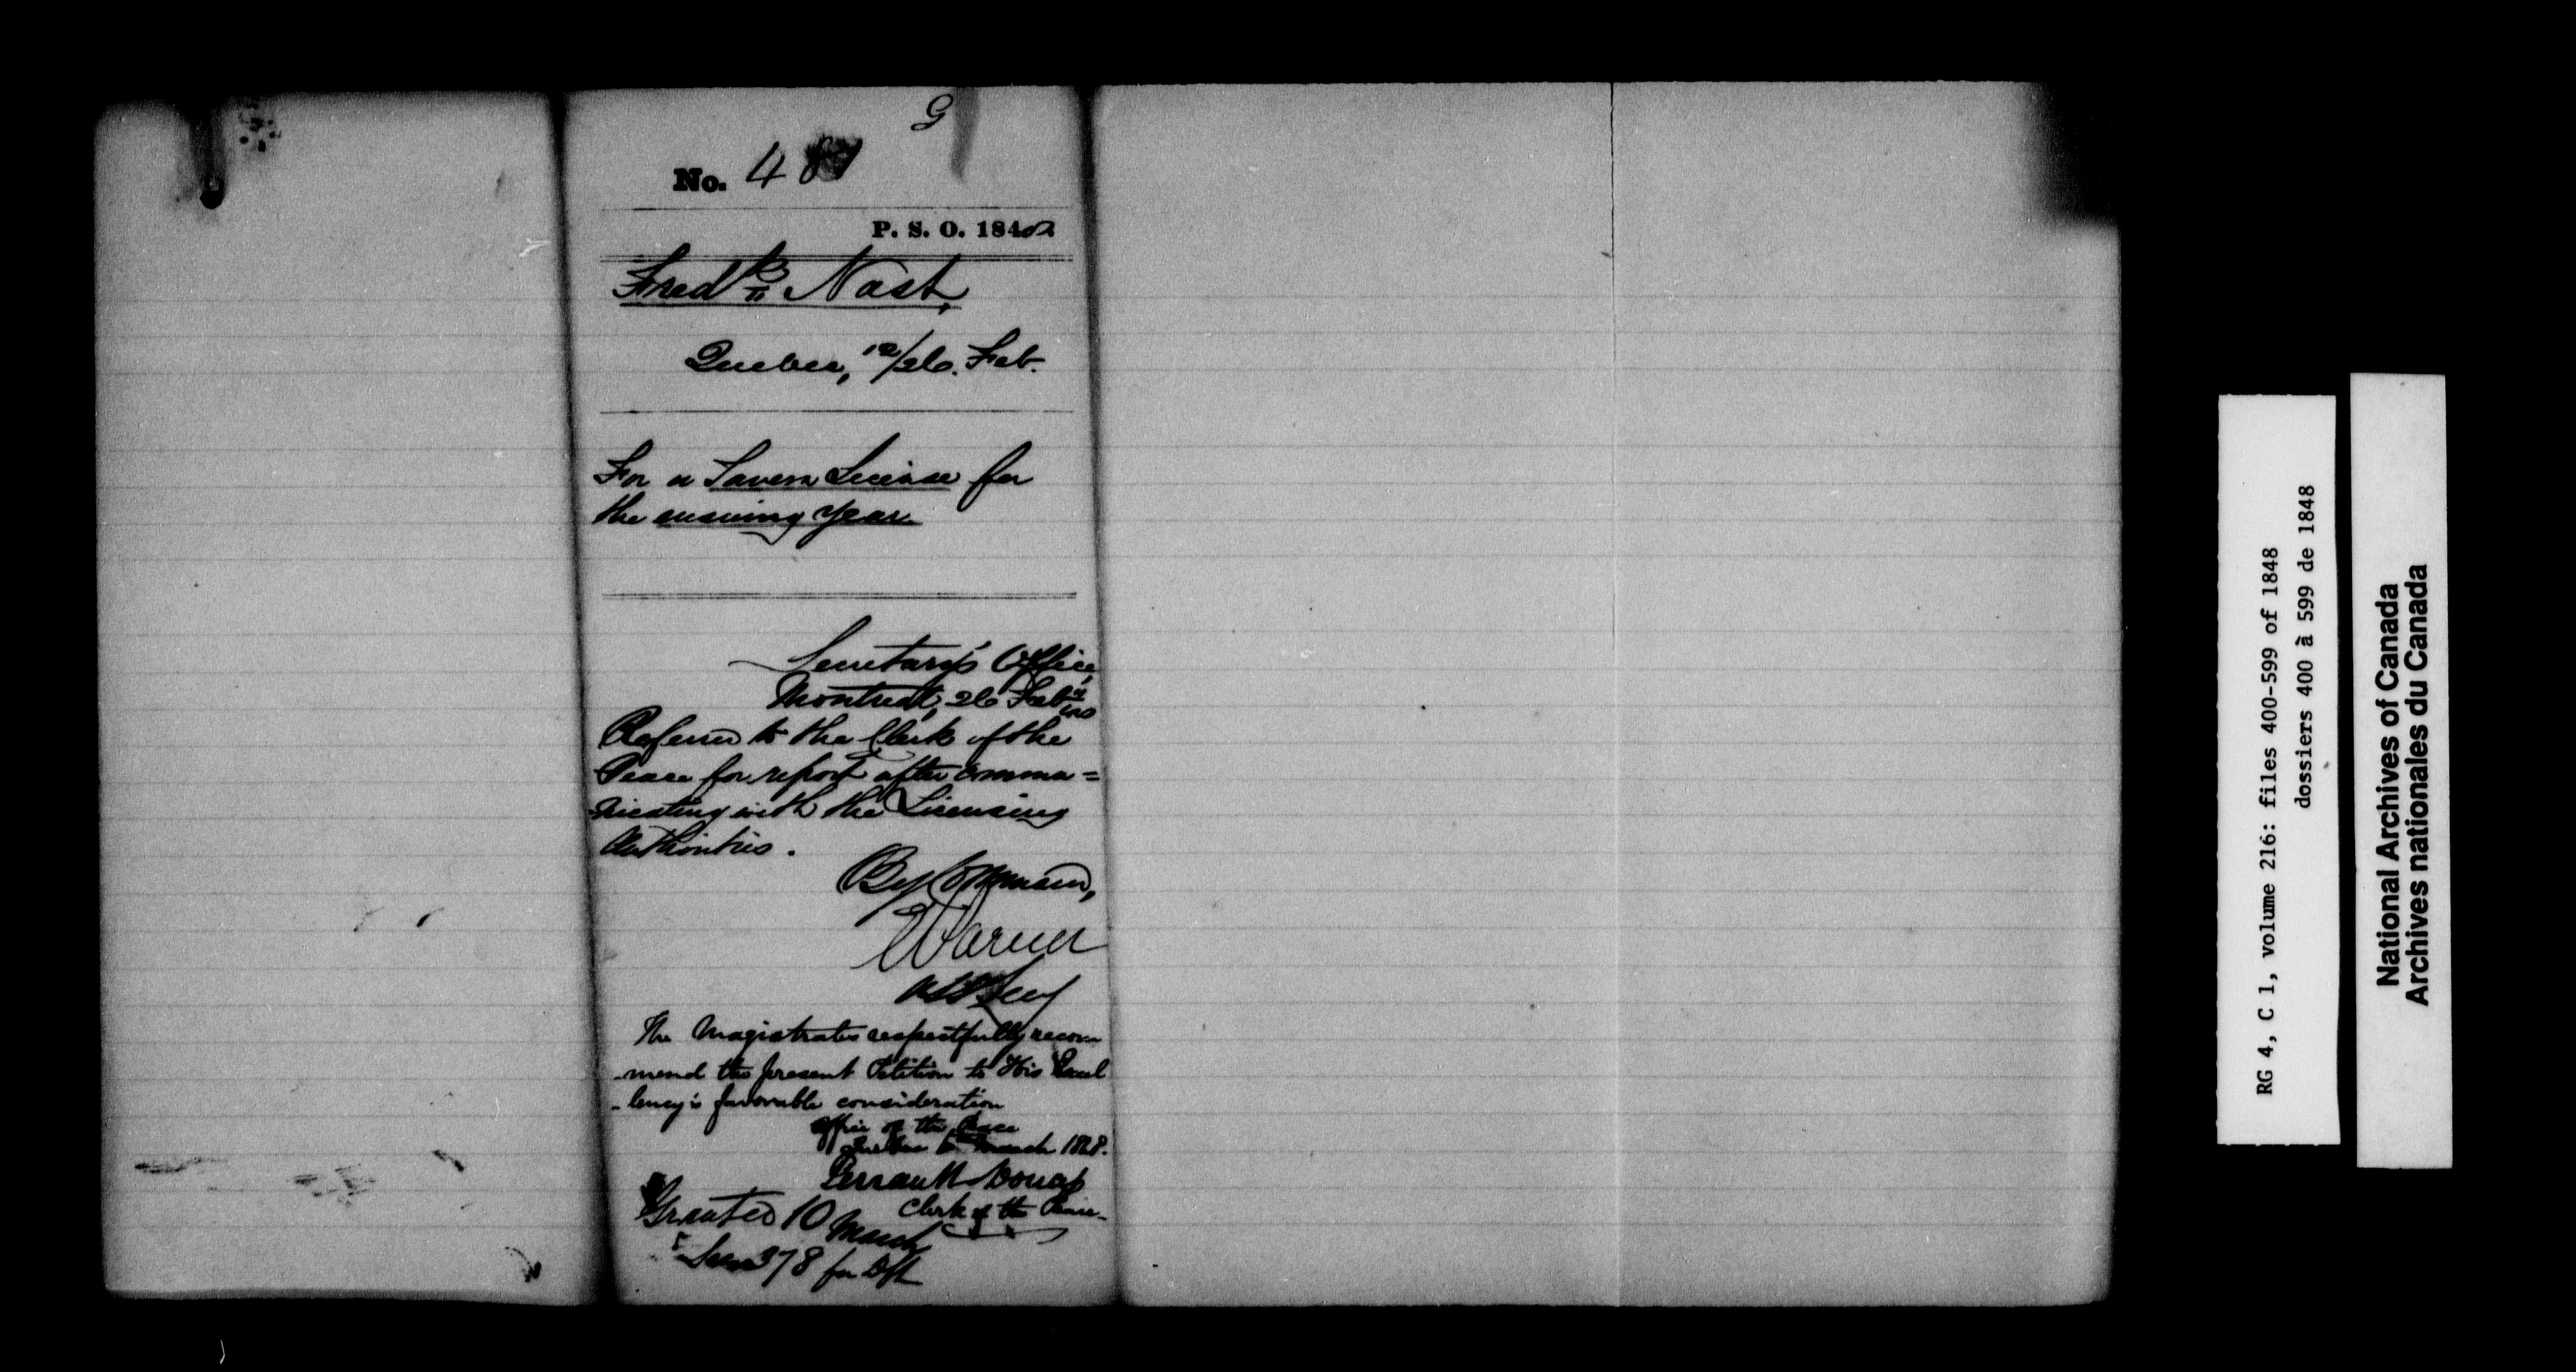 G
No. 481
P. S. O. 1848
Fredk Nast,
Quebec, 12/26. Feb.
For a Tavern License for
the ensuing year.
Secretary's Office,
Montreal, 26 Feby
Referred to the Clerk of the
Peace for report after commu=
nicating with the Licensing
Authorities.
By Command,
The Magistrates respectfully recom
-mend the present Petition to His Excel
-lency's favorable consideration
Office of the Peace
Quebec 6 March 1848.
Perrault
Clerk of the Peace
Granted 10
March
See 378 for Dft
RG 4, C 1, volume 216: files 400-599 of 1848
dossiers 400 à 599 de 1848
National Archives of Canada
Archives nationales du Canada